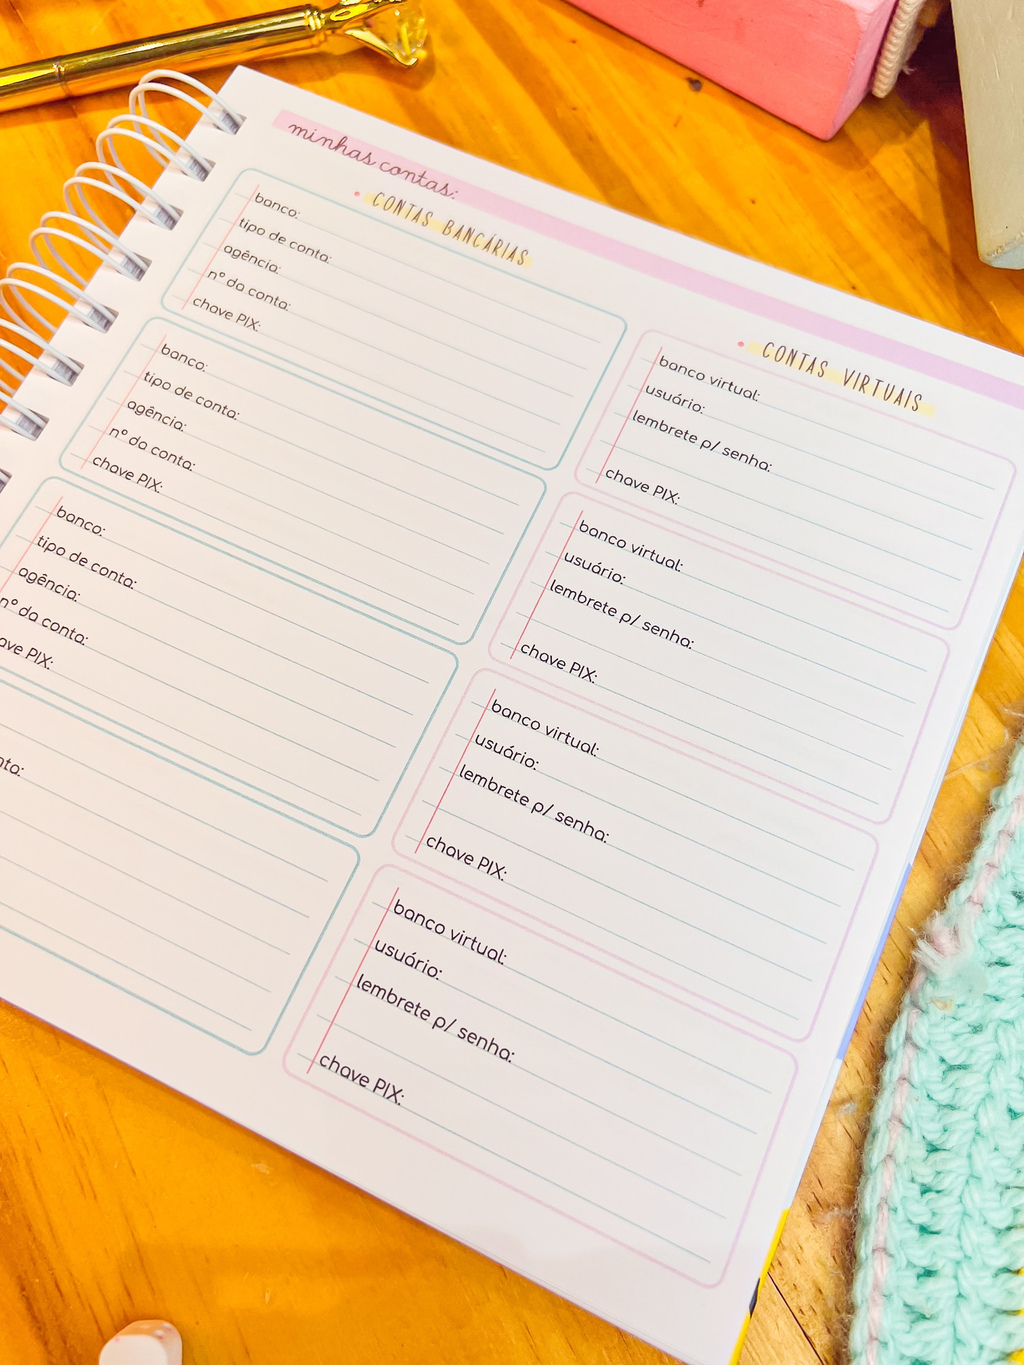 minhas contas:
CONTAS BANCÁRIAS
banco:
tipo de conta:
agência:
nº da conta:
chave PIX:
banco:
tipo de conta:
agência:
nº da conta:
chave PIX:
banco:
tipo de conta:
agência:
nº da conta:
PIX:
CONTAS VIRTUAIS
banco virtual:
usuário:
lembrete p/ senha:
chave PIX:
banco virtual:
usuário:
lembrete p/ senha:
chave PIX:
banco virtual:
usuário:
lembrete p/ senha:
chave PIX:
banco virtual:
usuário:
lembrete p/ senha:
chave PIX: